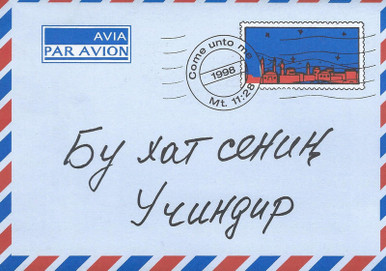 AVIA
PAR AVION
Come unto me
1998
Mt. 11:28
Бу хат сениң
Учиндир